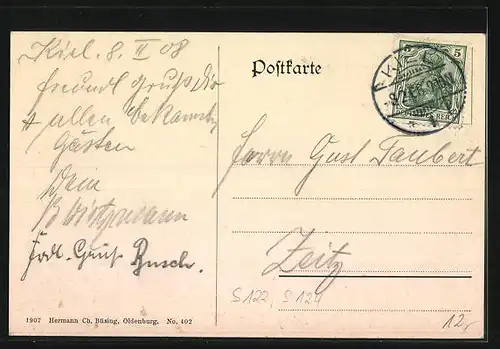 Kiel. 8. II 08
freundl Gruß Dir
+ allen bekannten
Gästen
Dein
Frdl. Gruß Busch.
Postkarte
5 5
KIEL
Herrn Gust Taubert
Zeitz
S122, S124
12,-
1907 Hermann Ch. Büsing, Oldenburg. No. 402